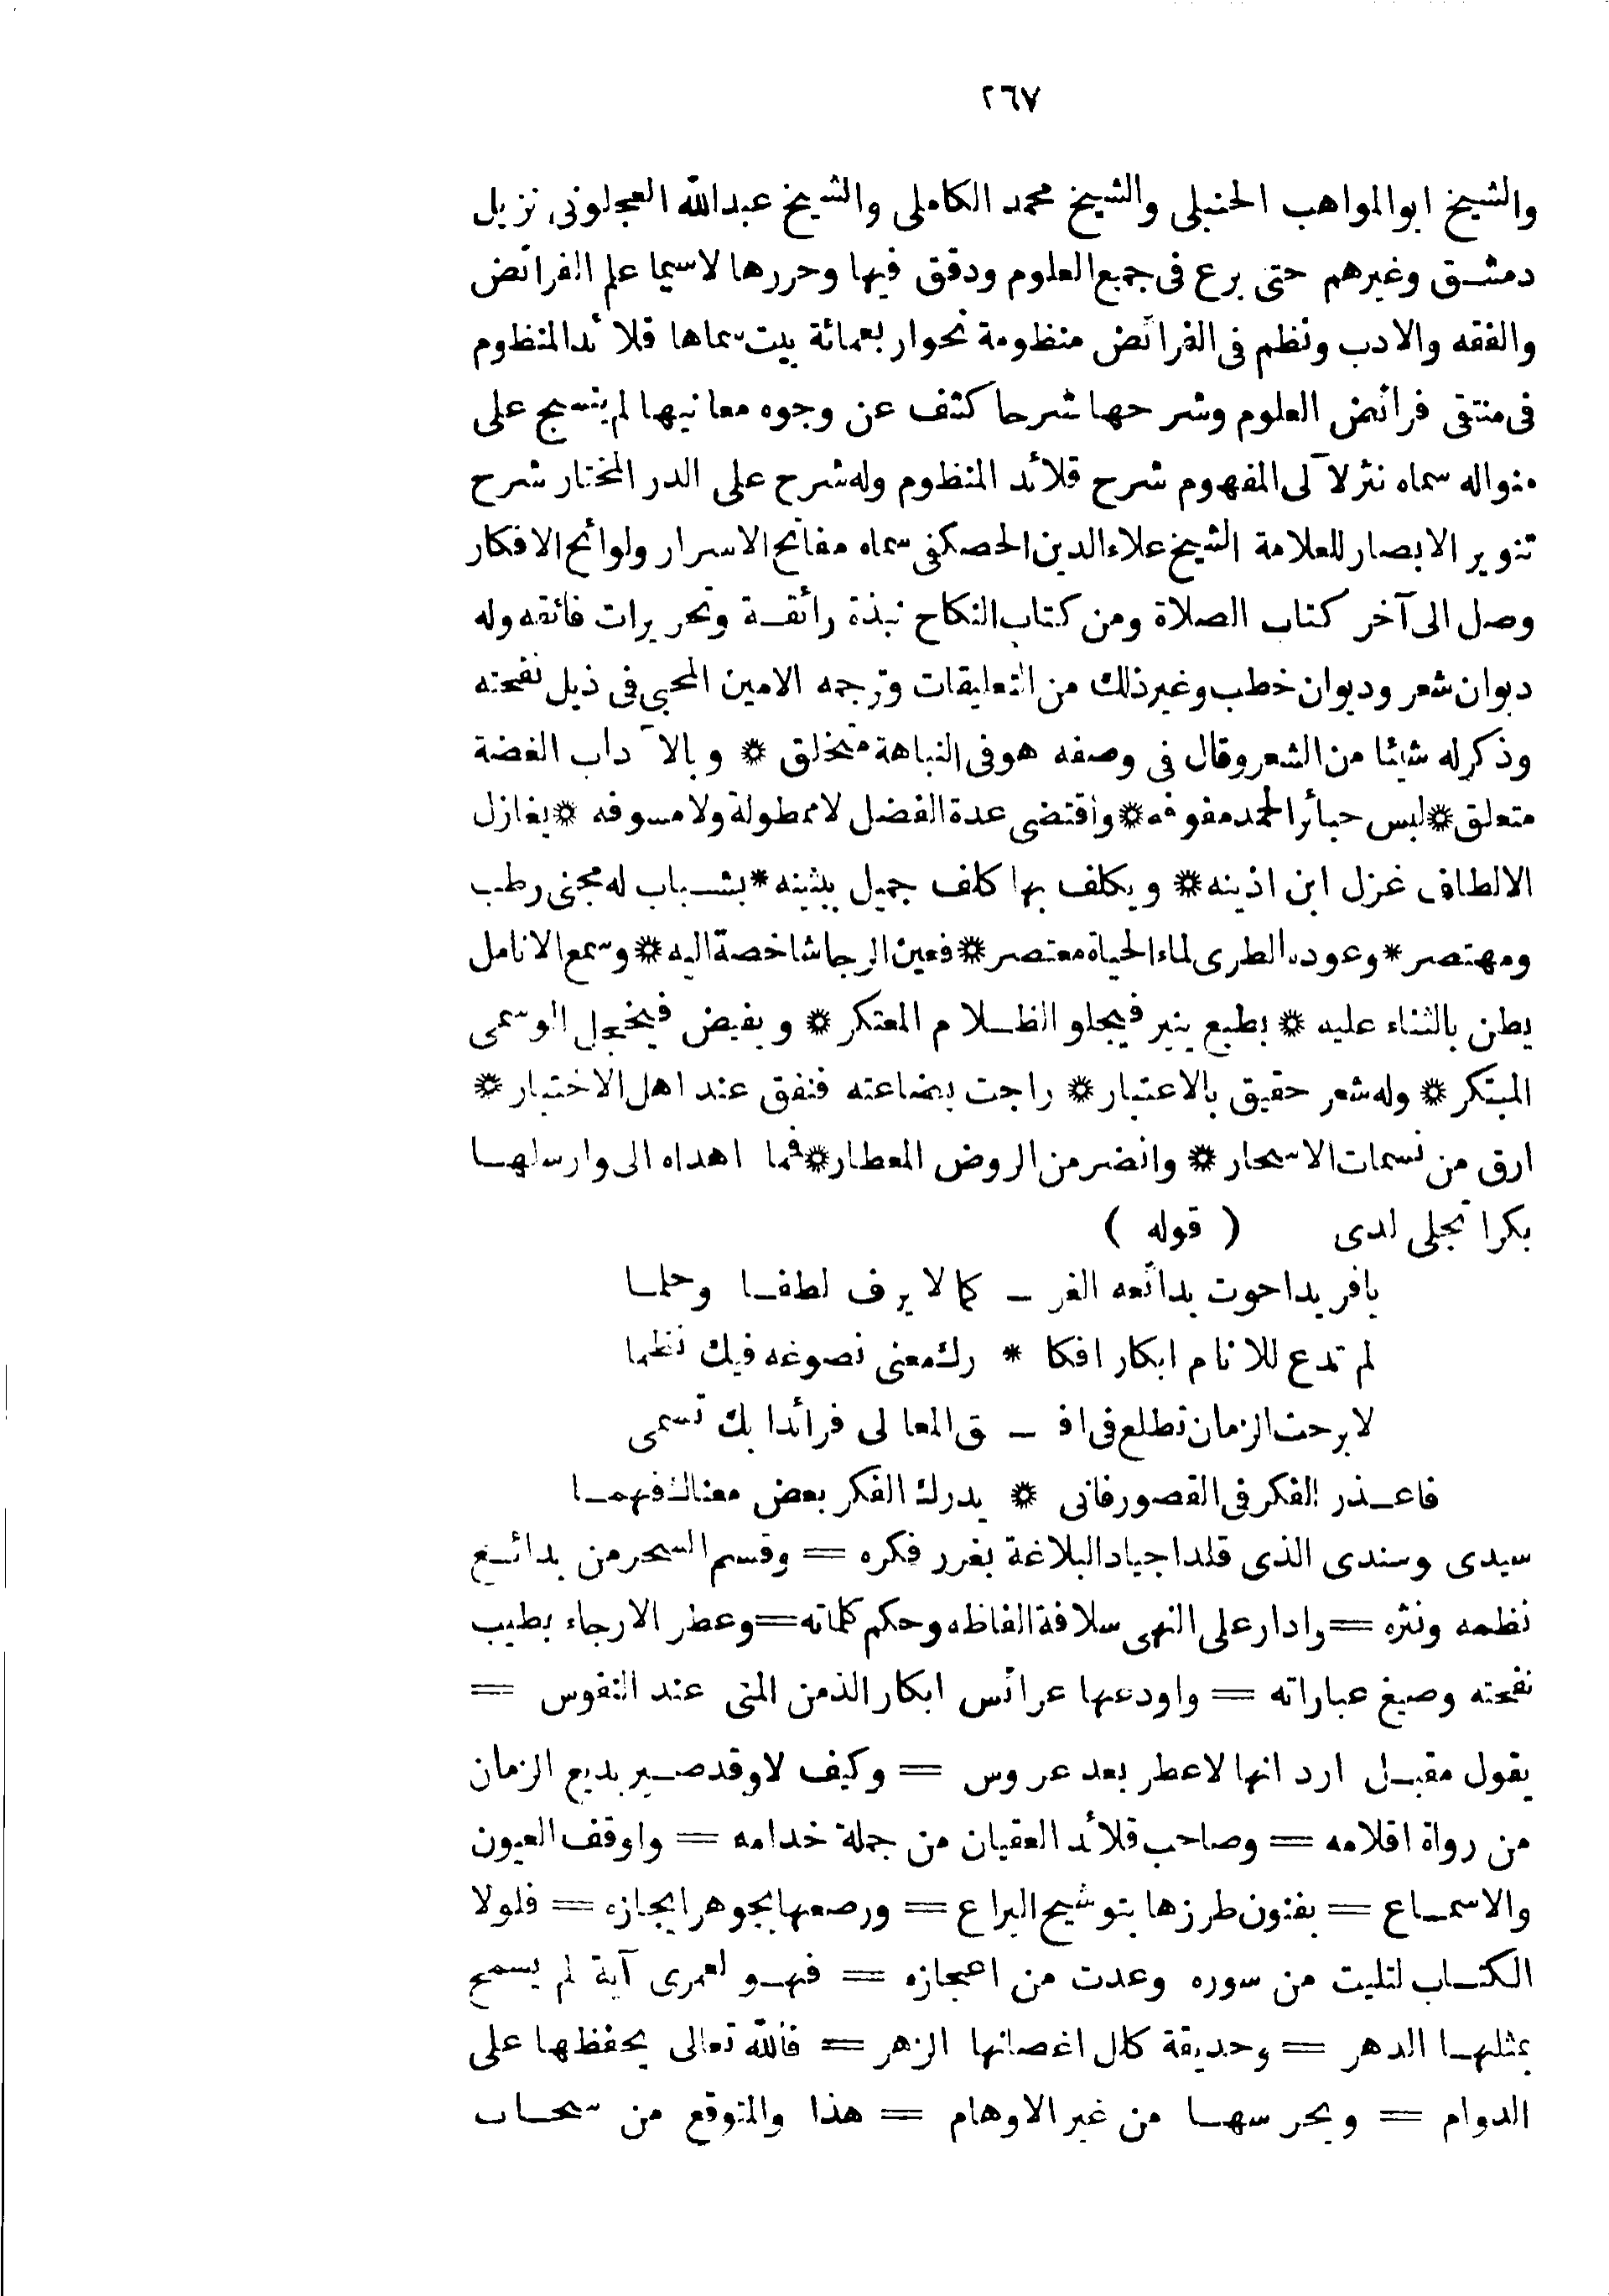 ٢٦٧
والشيخ ابوالمواهب الحنبلى والشيخ محمد الكاملى والشيخ عبدالله العجلونى نزيل
دمشق وغيرهم حتى برع فى جميع العلوم ودقق فيها وحررها لاسيما علم الفرائض
والفقه والادب ونظم فى الفرائض منظومة نحوار بعمائة بيت سماها قلائد المنظوم
فى منتقى فرائض العلوم وشرحها شرحا كشف عن وجوه معانيها لم ينسج على
منواله سماه نثر لآلى المفهوم شرح قلائد المنظوم وله شرح على الدر المختار شرح
تنوير الابصار للعلامة الشيخ علاءالدين الحصكفى سماه مفاتح الاسرار ولوائح الافكار
وصل الى آخر كتاب الصلاة ومن كتاب النكاح نبذة رائقة وتحريرات فائقه وله
ديوان شعر وديوان خطب وغير ذلك من التعليقات وترجمه الامين المحبى فى ذيل نفحته
وذكر له شيئا من الشعر وقال فى وصفه هو فى النباهة متخلق * وبالآداب الغضة
متعلق * لبس حبائر الحمد مفوفه * واقتضى عدة الفضل لا ممطولة ولا مسوفه * يغازل
الالطاف غزل ابن اذينه * ويكلف بها كلف جميل بثينه * بشباب له مجنى رطب
ومهتصر * وعوده الطرى لماء الحياة معتصر * فعين الرجا شاخصة اليه * وسمع الانامل
يطن بالثناء عليه * بطبع ينير فيجلو الظلام المعتكر * ويفيض فيخجل الوسمى
المبتكر * وله شعر حقيق بالاعتبار * راجت بضاعته فنفق عند اهل الاختبار *
ارق من نسمات الاسحار * وانضر من الروض المعطار * فما اهداه الى وارسلها
بكرا تجلى لدى ( قوله )
يافريدا حوت بدائعه الغر ـ كمالا يرف لطفا وحلما
لم تدع للانام ابكار افكا * رك معنى نصوغه فيك نظما
لا برحت الزمان تطلع فى اف ـ ق المعالى فرائدا بك تسمى
فاعذر الفكر فى القصور فانى * يدرك الفكر بعض معناك فهما
سيدى وسندى الذى قلد اجياد البلاغة بغرر فكره = وقسم السحر من بدائع
نظمه ونثره = وادار على النهى سلافة الفاظه وحكم كلماته = وعطر الارجاء بطيب
نفحته وصيغ عباراته = واودعها عرائس ابكار الذمن المنى عند النفوس =
يقول مقبل ارد انها لاعطر بعد عروس = وكيف لا وقد صير بديع الزمان
من رواة اقلامه = وصاحب قلائد العقيان من جملة خدامه = واوقف العيون
والاسماع = بفنون طرزها بتوشيح اليراع = ورصعها بجوهر ايجازه = فلولا
الكتاب لتليت من سوره وعدت من اعجازه = فهو لعمرى آية لم يسمح
بمثلها الدهر = وحديقة كلل اغصانها الزهر = فالله تعالى يحفظها على
الدوام = ويحرسها من غير الاوهام = هذا والمتوقع من سحاب